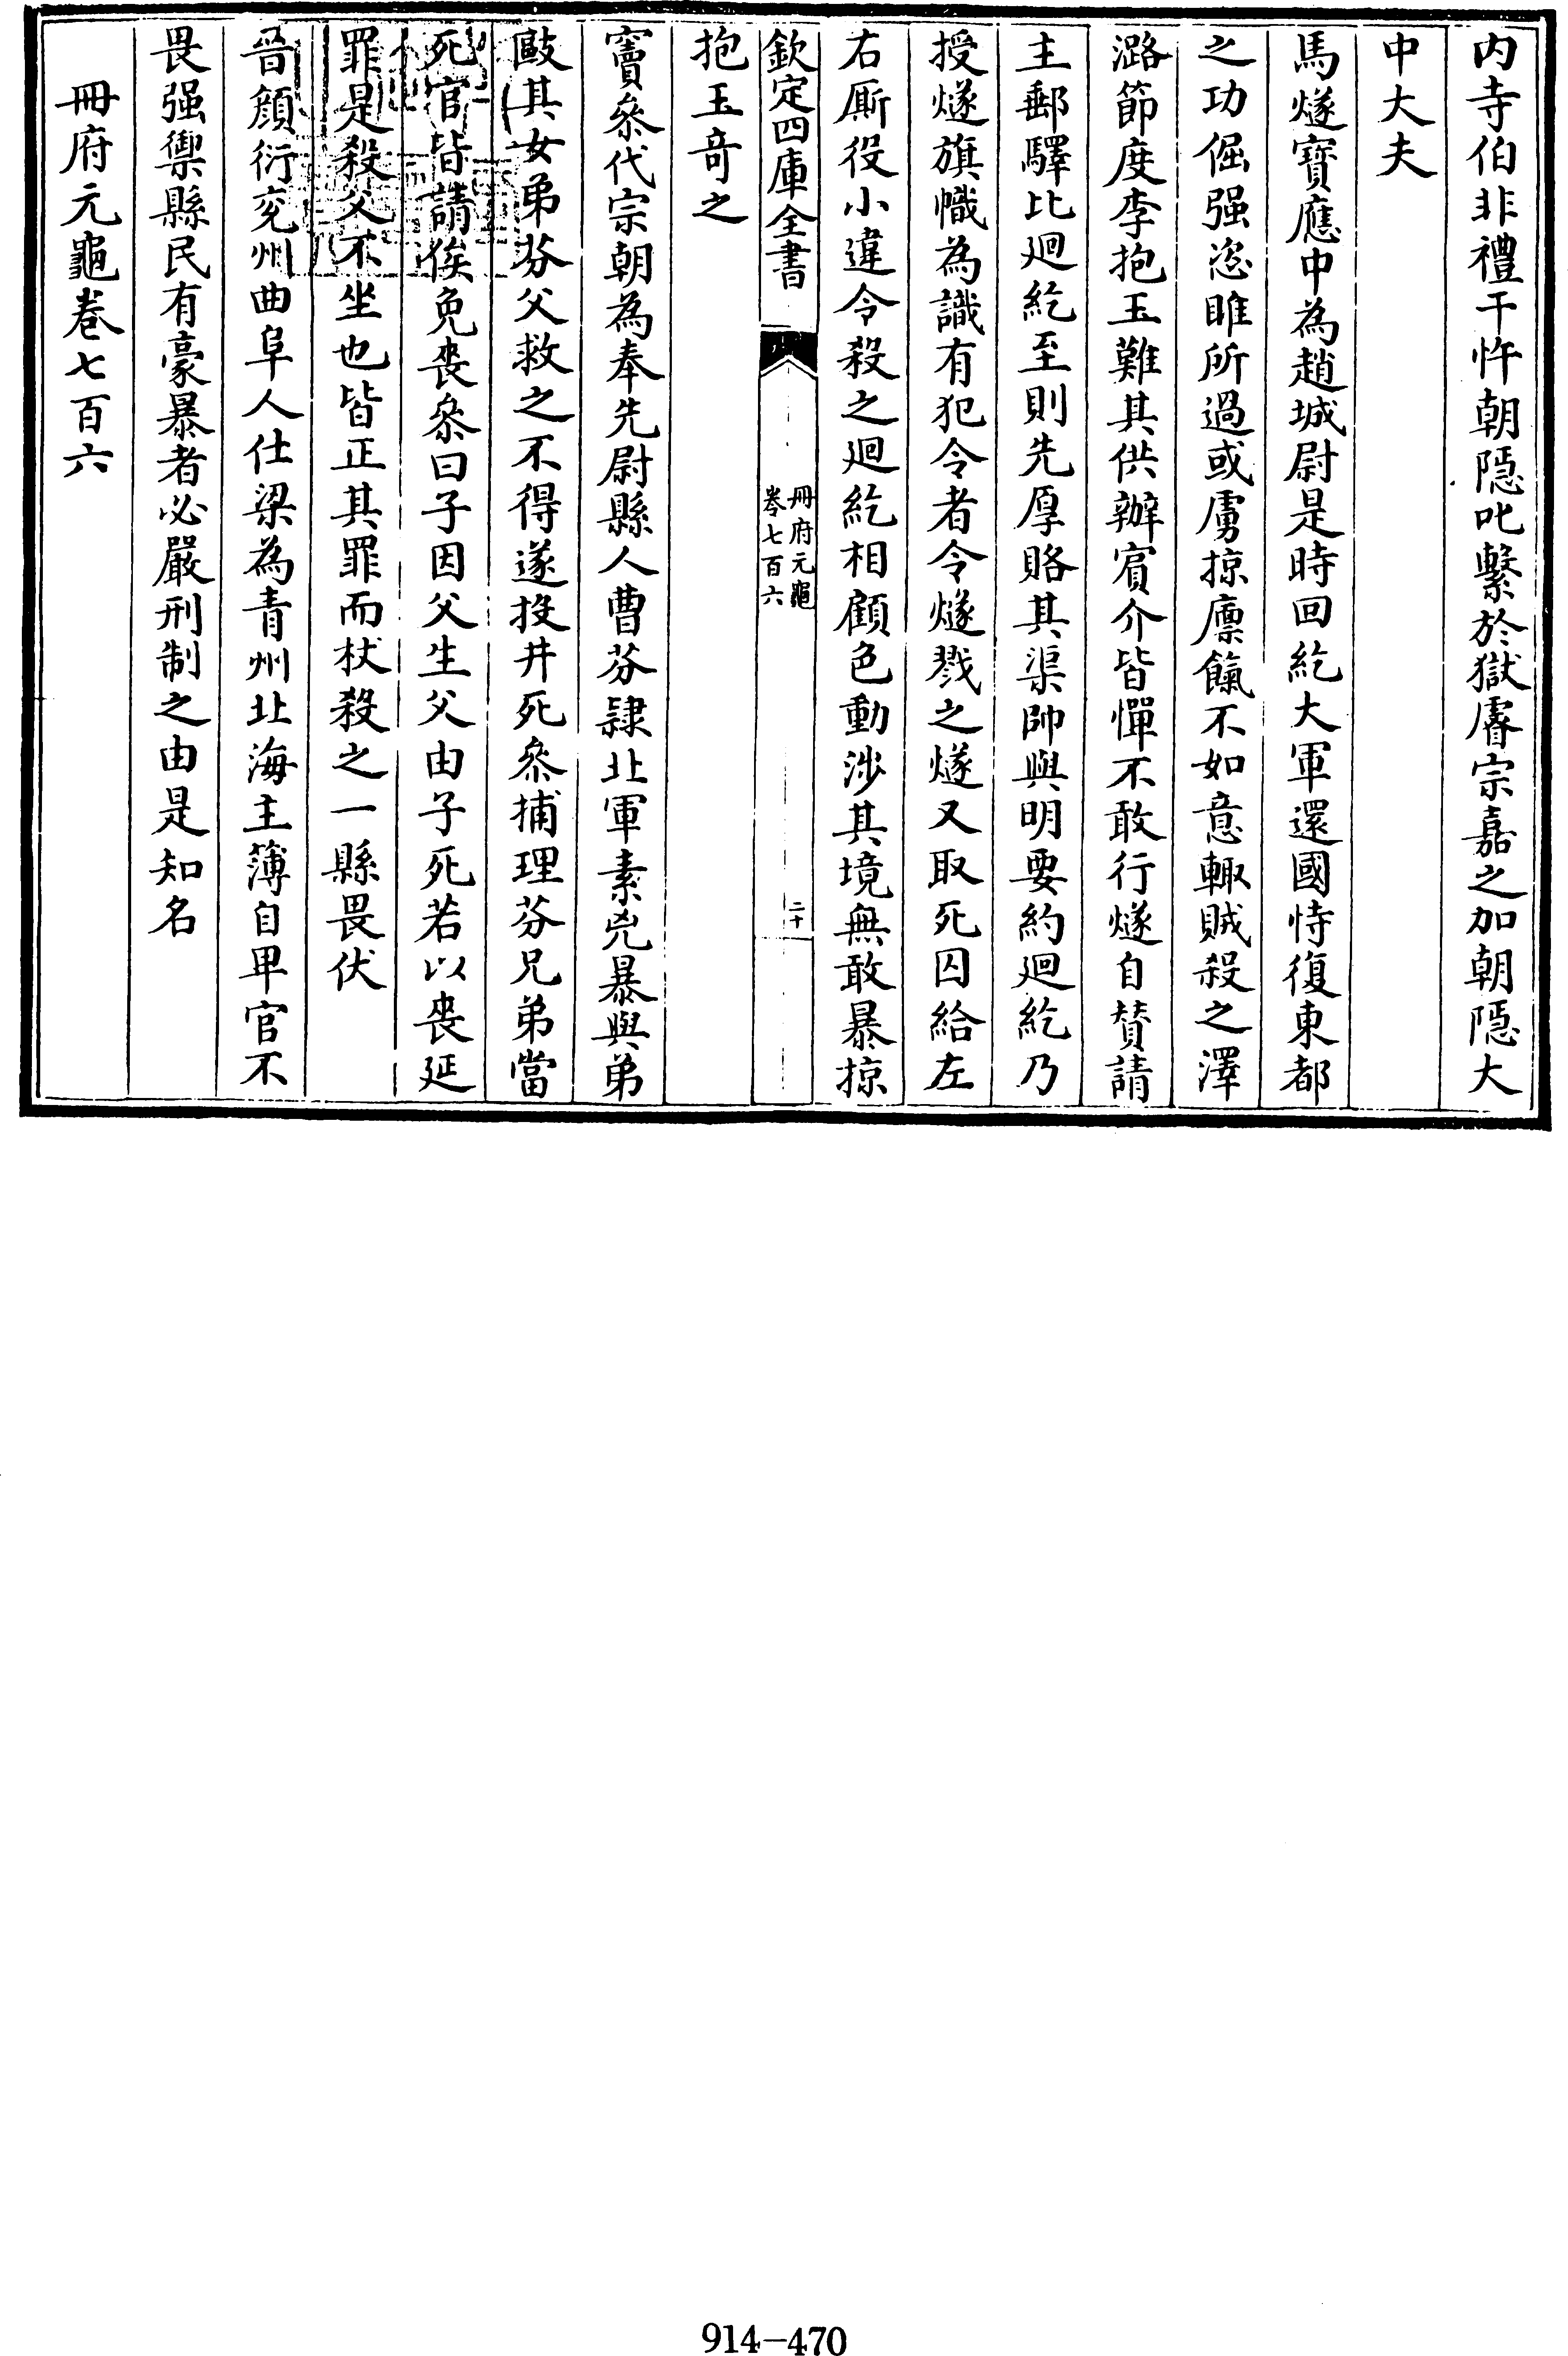 内寺伯非禮干忤朝隱叱繫於獄睿宗嘉之加朝隱大
中大夫
馬燧寶應中為趙城尉是時回紇大軍還國恃復東都
之功倔强恣睢所過或虜掠廪餼不如意輙賊殺之澤
潞節度李抱玉難其供辦賔介皆憚不敢行燧自賛請
主郵驛比廻紇至則先厚賂其渠帥與明要約廻紇乃
授燧旗幟為識有犯令者令燧戮之燧又取死囚給左
右厮役小違令殺之廻紇相顧色動涉其境無敢暴掠
欽定四庫全書
冊府元龜
卷七百六
二十
抱玉竒之
竇叅代宗朝為奉先尉縣人曹芬隷北軍素兇暴與弟
毆其女弟芬父救之不得遂投井死叅捕理芬兄弟當
死官皆請俟免喪叅曰子因父生父由子死若以喪延
罪是殺父不坐也皆正其罪而杖殺之一縣畏伏
晉顔衍兖州曲阜人仕梁為青州北海主薄自卑官不
畏强禦縣民有豪暴者必嚴刑制之由是知名
冊府元龜卷七百六
914-470